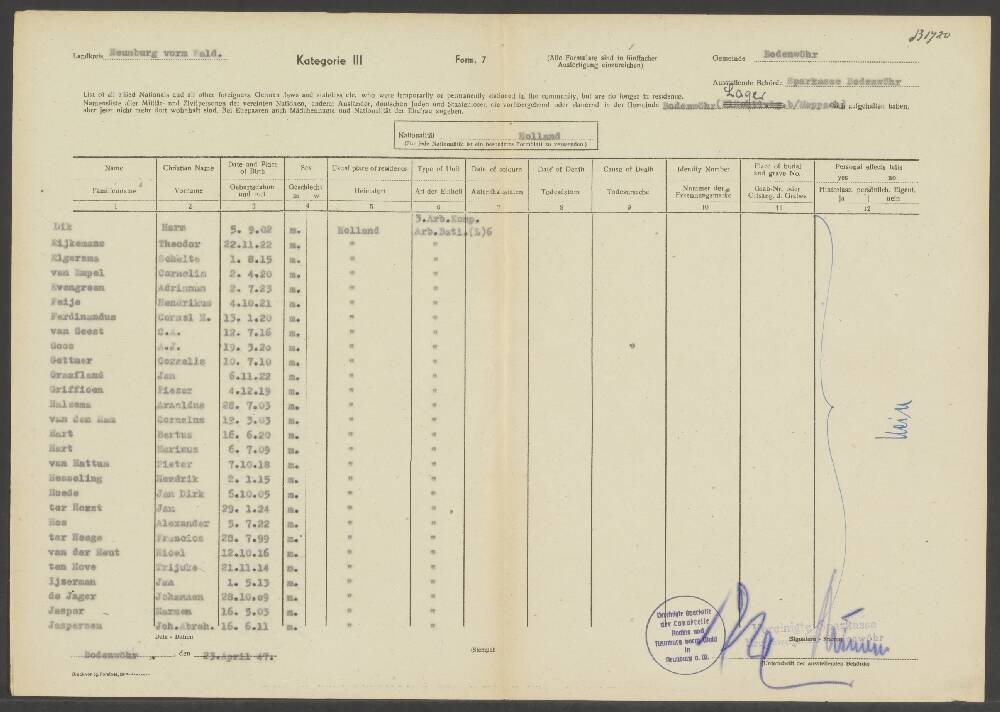 131720
Landkreis Neunburg vorm Wald.
Kategorie III
Form. 7
(Alle Formulare sind in fünffacher
Ausfertigung einzureichen)
Gemeinde Bodenwöhr
Ausstellende Behörde Sparkasse Bodenwöhr
Lager
List of all allied Nationals and all other foreigners, German Jews and stateless etc. who were temporarily or permanently stationed in the community, but are no longer in residence.
Namensliste aller Militär- und Zivilpersonen der vereinten Nationen, anderer Ausländer, deutschen Juden und Staatenloser, die vorübergehend oder dauernd in der Gemeinde Bodenwöhr aufgehalten haben,
aber jetzt nicht mehr dort wohnhaft sind. Bei Ehepaaren auch Mädchenname und Nationalität der Ehefrau angeben.
Nationalität Holland
(Für jede Nationalität ist ein besonderes Formblatt zu verwenden)
Name Christian Name Date and Place of Birth Sex Usual place of residence Type of Unit Date of sojourn Date of Death Cause of Death Identity Number Place of burial and grave No. Personal effects hills yes no
Familienname Vorname Geburtsdatum und -ort Geschlecht m w Heimatort Art der Einheit Aufenthaltsdaten Todesdatum Todesursache Nummer der Erkennungsmarke Grab-Nr. oder Gebäug. d. Grabes Hinterlass. persönlich. Eigent. ja nein
1 2 3 4 5 6 7 8 9 10 11 12
3.Arb.Komp.
Dik Harm 5. 9.02 m. Holland Arb.Batl.(L)6
Eijkemans Theodor 22.11.22 m. " "
Elgersma Schelte 1. 8.15 m. " "
van Empel Cornelis 2. 4.20 m. " "
Evengroen Adrianus 2. 7.23 m. " "
Feije Hendrikus 4.10.21 m. " "
Ferdinandus Cornel H. 13. 1.20 m. " "
van Geest C.A. 12. 7.16 m. " "
Goos A.J. 19. 3.20 m. " "
Gettner Cornelis 10. 7.10 m. " "
Graafland Jan 6.11.22 m. " "
Griffioen Pieter 4.12.19 m. " "
Halsema Arnoldus 28. 7.03 m. " "
van den Ham Cornelus 19. 3.03 m. " "
Hart Bertus 16. 6.20 m. " "
Hart Marinus 6. 7.09 m. " "
van Hattum Pieter 7.10.18 m. " "
Hesseling Hendrik 2. 1.15 m. " "
Hoede Jan Dirk 6.10.05 m. " "
ter Horst Jan 29. 1.24 m. " "
Hos Alexander 5. 7.22 m. " "
ter Heege Francios 28. 7.99 m. " "
van der Hout Nicel 12.10.16 m. " "
ten Hove Frijuke 21.11.14 m. " "
Ijzerman Jan 1. 5.13 m. " "
de Jager Johannen 28.10.09 m. " "
Jasper Harmen 16. 5.03 m. " "
Jaspersen Joh.Abrah. 16. 6.11 m. " "
Nein
Date - Datum
Bodenwöhr, den 23.April 47.
(Stempel)
Vereinigte Sparkasse
Signature - Stamp
(Unterschrift der ausstellenden Behörde)